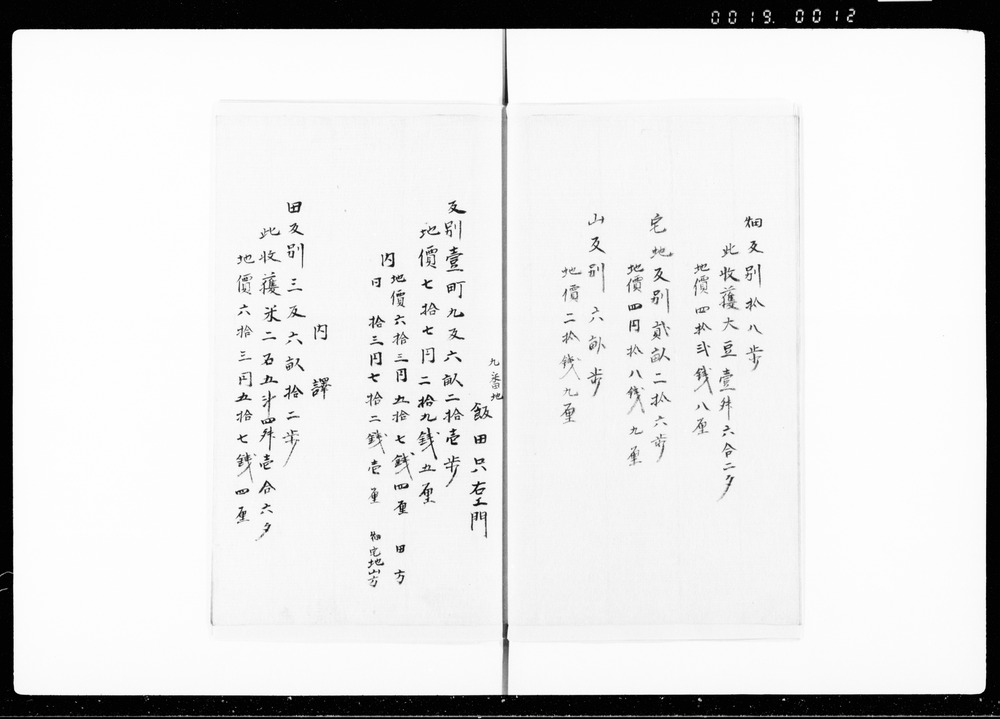 0019. 0012
畑反別拾八歩
此收蘿大豆壹舛六合二夕
地價四拾弐錢八厘
宅地反別貳畝二拾六歩
地價四円拾八錢九厘
山反別六畝歩
地價二拾錢九厘
九番地
飯田只右エ門
反別壹町九反六畝二拾壱歩
地價七拾七円二拾九錢五厘
内地價六拾三円五拾七錢四厘 田方
同拾三円七拾二錢壱厘 畑宅地山方
内譯
田反別三反六畝拾二歩
此收蘿米二石五斗四舛壱合六夕
地價六拾三円五拾七錢四厘